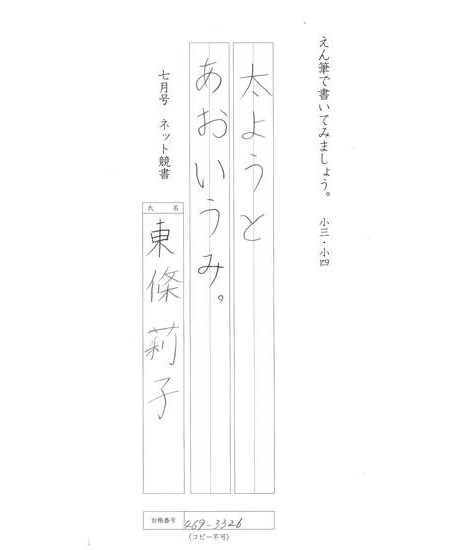 えん筆で書いてみましょう。 小三・小四
太ようと
あおいうみ。
七月号 ネット競書
氏名
東條莉子
台帳番号 469-3326
(コピー不可)